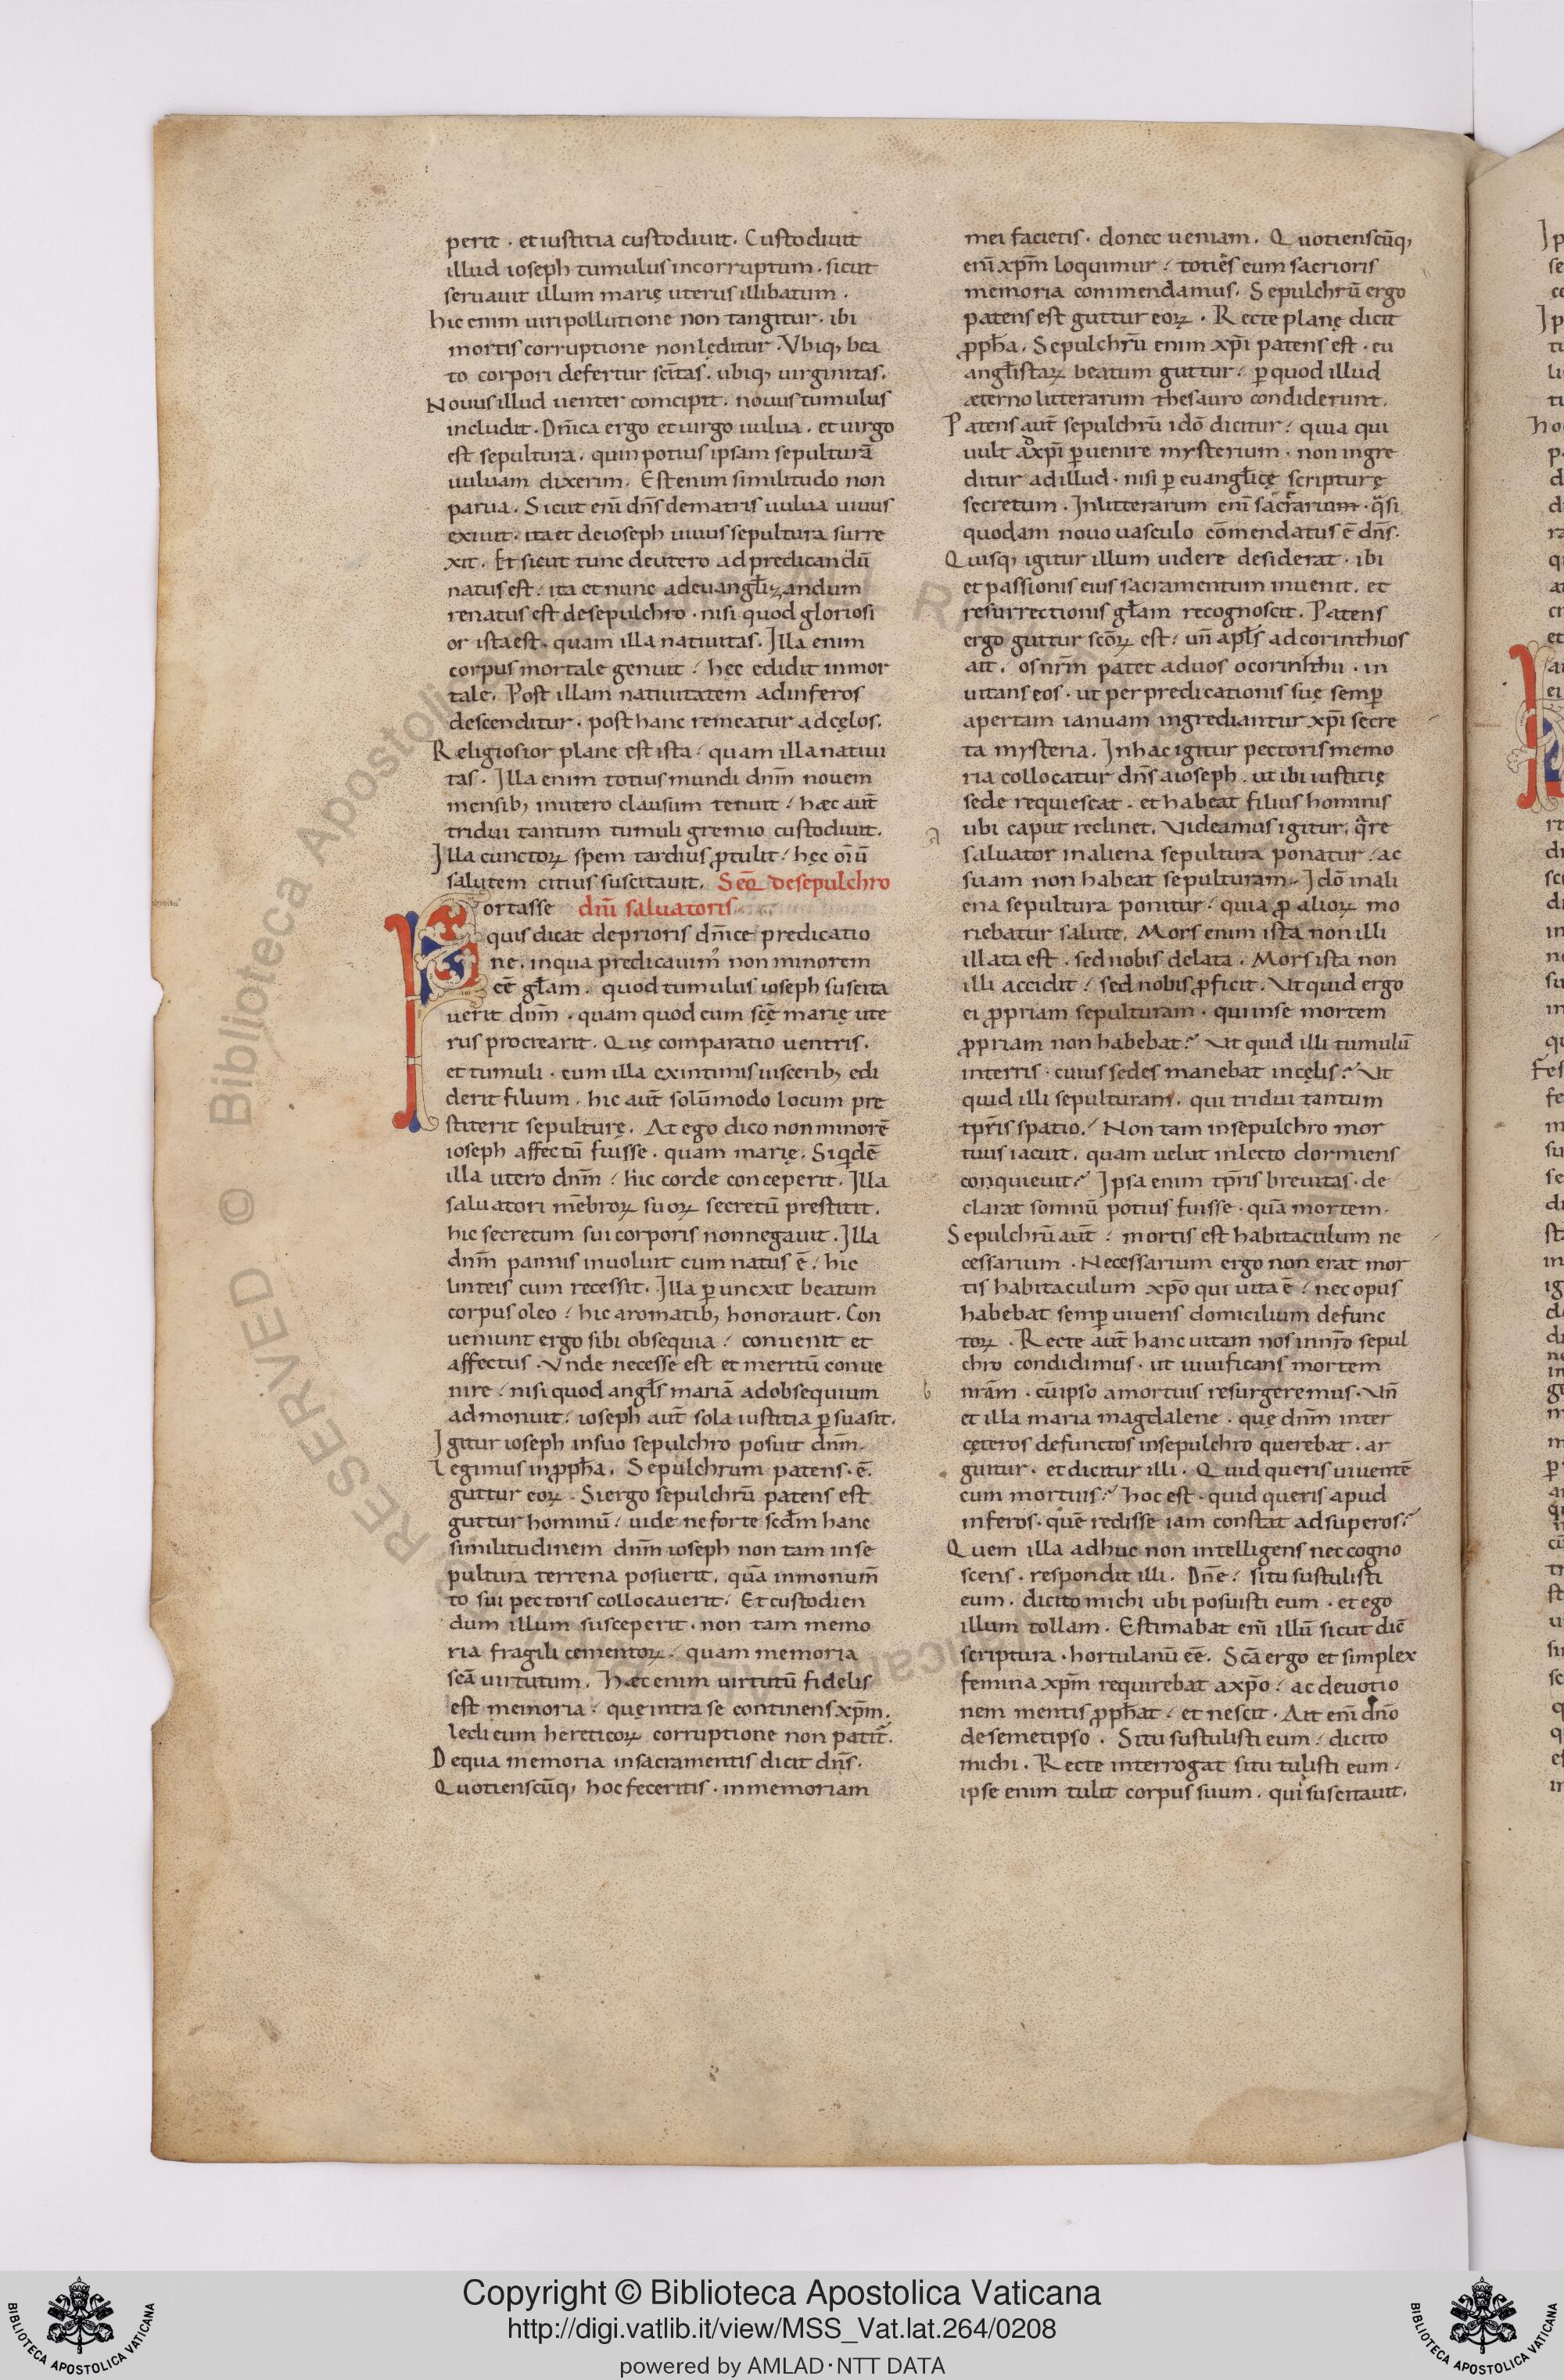 perit · et iustitia custodiuit. Custodiuit
illud ioseph tumulus incorruptum · sicut
seruauit illum marię uterus illibatum.
hic enim uiri pollutione non tangitur · ibi
mortis corruptione non lęditur. Vbiq; bea
to corpori defertur sc̄itas. ubiq; uirginitas.
Nouus illud uenter comcipit. nouus tumulus
includit. Dn̄ica ergo et uirgo uulua. et uirgo
est sepultura. quin potius ipsam sepulturā
uuluam dixerim. Est enim similitudo non
parua. Sicut eni̅ dn̄s de matris uulua uiuus
exiuit. ita et de ioseph uiuus sepultura surre
xit. Et sicut tunc deutero ad predicandū
natus est. ita et nunc ad euangl̄izandum
renatus est de sepulchro · nisi quod gloriosi
or ista est. quam illa natiuitas. Illa enim
corpus mortale genuit. hęc edidit inmor
tale. Post illam natiuitatem ad inferos
descenditur. post hanc remeatur ad cęlos.
Religiosior plane est ista. quam illa natiui
tas. Illa enim totius mundi dn̄m nouem
mensib; in utero clausum tenuit. hæc aut̄
tridui tantum tumuli gremio custodiuit.
Illa cunctoꝝ spem tardius ꝓtulit. hęc oi̅ū
salutem citius suscitauit. Seq̄ de sepulchro
Fortasse dn̄i saluatoris
quis dicat de prioris dn̄ice predicatio
ne. in qua predicauim᾿ non minorem
ēē gl̄am. quod tumulus ioseph suscita
uerit dn̄m · quam quod eum scę̄ marię ute
rus procrearit. Quę comparatio uentris.
et tumuli · eum illa ex intimis uiscerib; edi
derit filium. hic aut̄ solūmodo locum pre
stiterit sepulturę. At ego dico non minorē
ioseph affectū fuisse. quam marię. Siqdē
illa utero dn̄m. hic corde conceperit. Illa
saluatori mēbroꝝ suoꝝ secretū prestitit.
hic secretum sui corporis non negauit. Illa
dn̄m pannis inuoluit cum natus ē. hic
linteis cum recessit. Illa ꝑuncxit beatum
corpus oleo. hic aromatib; honorauit. Con
ueniunt ergo sibi obsequia. conuenit et
affectus. Vnde necesse est et meritū conue
nire. nisi quod angl̄s mariā ad obsequium
admonuit. ioseph aut̄ sola iustitia ꝑsuasit.
Igitur ioseph in suo sepulchro posuit dn̄m.
Legimus in ꝓph̄a. Sepulchrum patens. ē.
guttur eoꝝ. Si ergo sepulchrū patens est
guttur hominū. uide ne forte scd̄m hanc
similitudinem dn̄m ioseph non tam in se
pultura terrena posuerit. quā in monum̄
to sui pectoris collocauerit. Et custodien
dum illum susceperit. non tam memo
ria fragili cementoꝝ. quam memoria
scā uirtutum. Hæc enim uirtutū fidelis
est memoria. quę intra se continens xp̄m.
ledi eum hereticoꝝ corruptione non patit᾿.
De qua memoria in sacramentis dicit dn̄s.
Quotienscūq; hoc feceritis · in memoriam
mei facietis. donec ueniam. Quotienscūq;
eni̅ xp̄m loquimur. totiēs eum sacrioris
memoria commendamus. Sepulchrū ergo
patens est guttur eoꝝ. Recte planę dicit
ꝓph̄a. Sepulchrū enim xp̄i patens est. eu
angl̄istaꝝ beatum guttur. ꝑ quod illud
æterno litterarum thesauro condiderunt.
Patens aut̄ sepulchrū idō dicitur. quia qui
uult ad xp̄i ꝑuenire mysterium · non ingre
ditur ad illud · nisi ꝑ euangl̄icę scripturę
secretum. In litterarum eni̅ sacrarium. qͣsi
quodam nouo uasculo cōmendatus ē dn̄s.
Quisq; igitur illum uidere desiderat. ibi
et passionis eius sacramentum inuenit. et
resurrectionis gl̄am recognoscit. Patens
ergo guttur scōꝝ est. un̄ apl̄s ad corinthios
ait. os nr̄m patet ad uos o corinthii. in
uitans eos. ut per predicationis suę semꝑ
apertam ianuam ingrediantur xp̄i secre
ta mysteria. In hac igitur pectoris memo
ria collocatur dn̄s a ioseph. ut ibi iustitię
sede requiescat. et habeat filius hominis
ubi caput reclinet. Videamus igitur. qͣre
saluator in aliena sepultura ponatur. ac
suam non habeat sepulturam. Idō in ali
ena sepultura ponitur. quia ꝓ alioꝝ mo
riebatur salute. Mors enim ista non illi
illata est. sed nobis delata. Mors ista non
illi accidit. sed nobis ꝓficit. Vt quid ergo
ei ꝓpriam sepulturam. qui in se mortem
ꝓpriam non habebat. Vt quid illi tumulū
in terris. cuius sedes manebat in cęlis. Vt
quid illi sepulturam. qui tridui tantum
tp̄ris spatio. Non tam in sepulchro mor
tuus iacuit. quam uelut in lecto dormiens
conquieuit. Ipsa enim tp̄ris breuitas. de
clarat somnū potius fuisse. quā mortem.
Sepulchrū aut̄. mortis est habitaculum ne
cessarium. Necessarium ergo non erat mor
tis habitaculum xp̄o qui uita ē. nec opus
habebat semꝑ uiuens domicilium defunc
toꝝ. Recte aut̄ hanc uitam nos in nr̄o sepul
chro condidimus. ut uiuificans mortem
nr̄am. cū ipso a mortuis resurgeremus. Vn̄
et illa maria magdalene. quę dn̄m inter
cęteros defunctos in sepulchro querebat. ar
guitur. et dicitur illi. Quid queris uiuentē
cum mortuis. hoc est. quid queris apud
inferos. quē redisse iam constat ad superos.
Quem illa adhuc non intelligens nec cogno
scens. respondit illi. Dn̄e. si tu sustulisti
eum. dicito michi ubi posuisti eum. et ego
illum tollam. Estimabat eni̅ illū sicut dic̄
scriptura. hortulanū ēē. Scā ergo et simplex
femina xp̄m requirebat a xp̄o. ac deuotio
nem mentis ꝓph̄at. et nescit. Ait eni̅ dn̄o
de semetipso. Si tu sustulisti eum. dicito
michi. Recte interrogat si tu tulisti eum.
ipse enim tulit corpus suum. qui suscitauit.
Copyright © Biblioteca Apostolica Vaticana
http://digi.vatlib.it/view/MSS_Vat.lat.264/0208
powered by AMLAD·NTT DATA